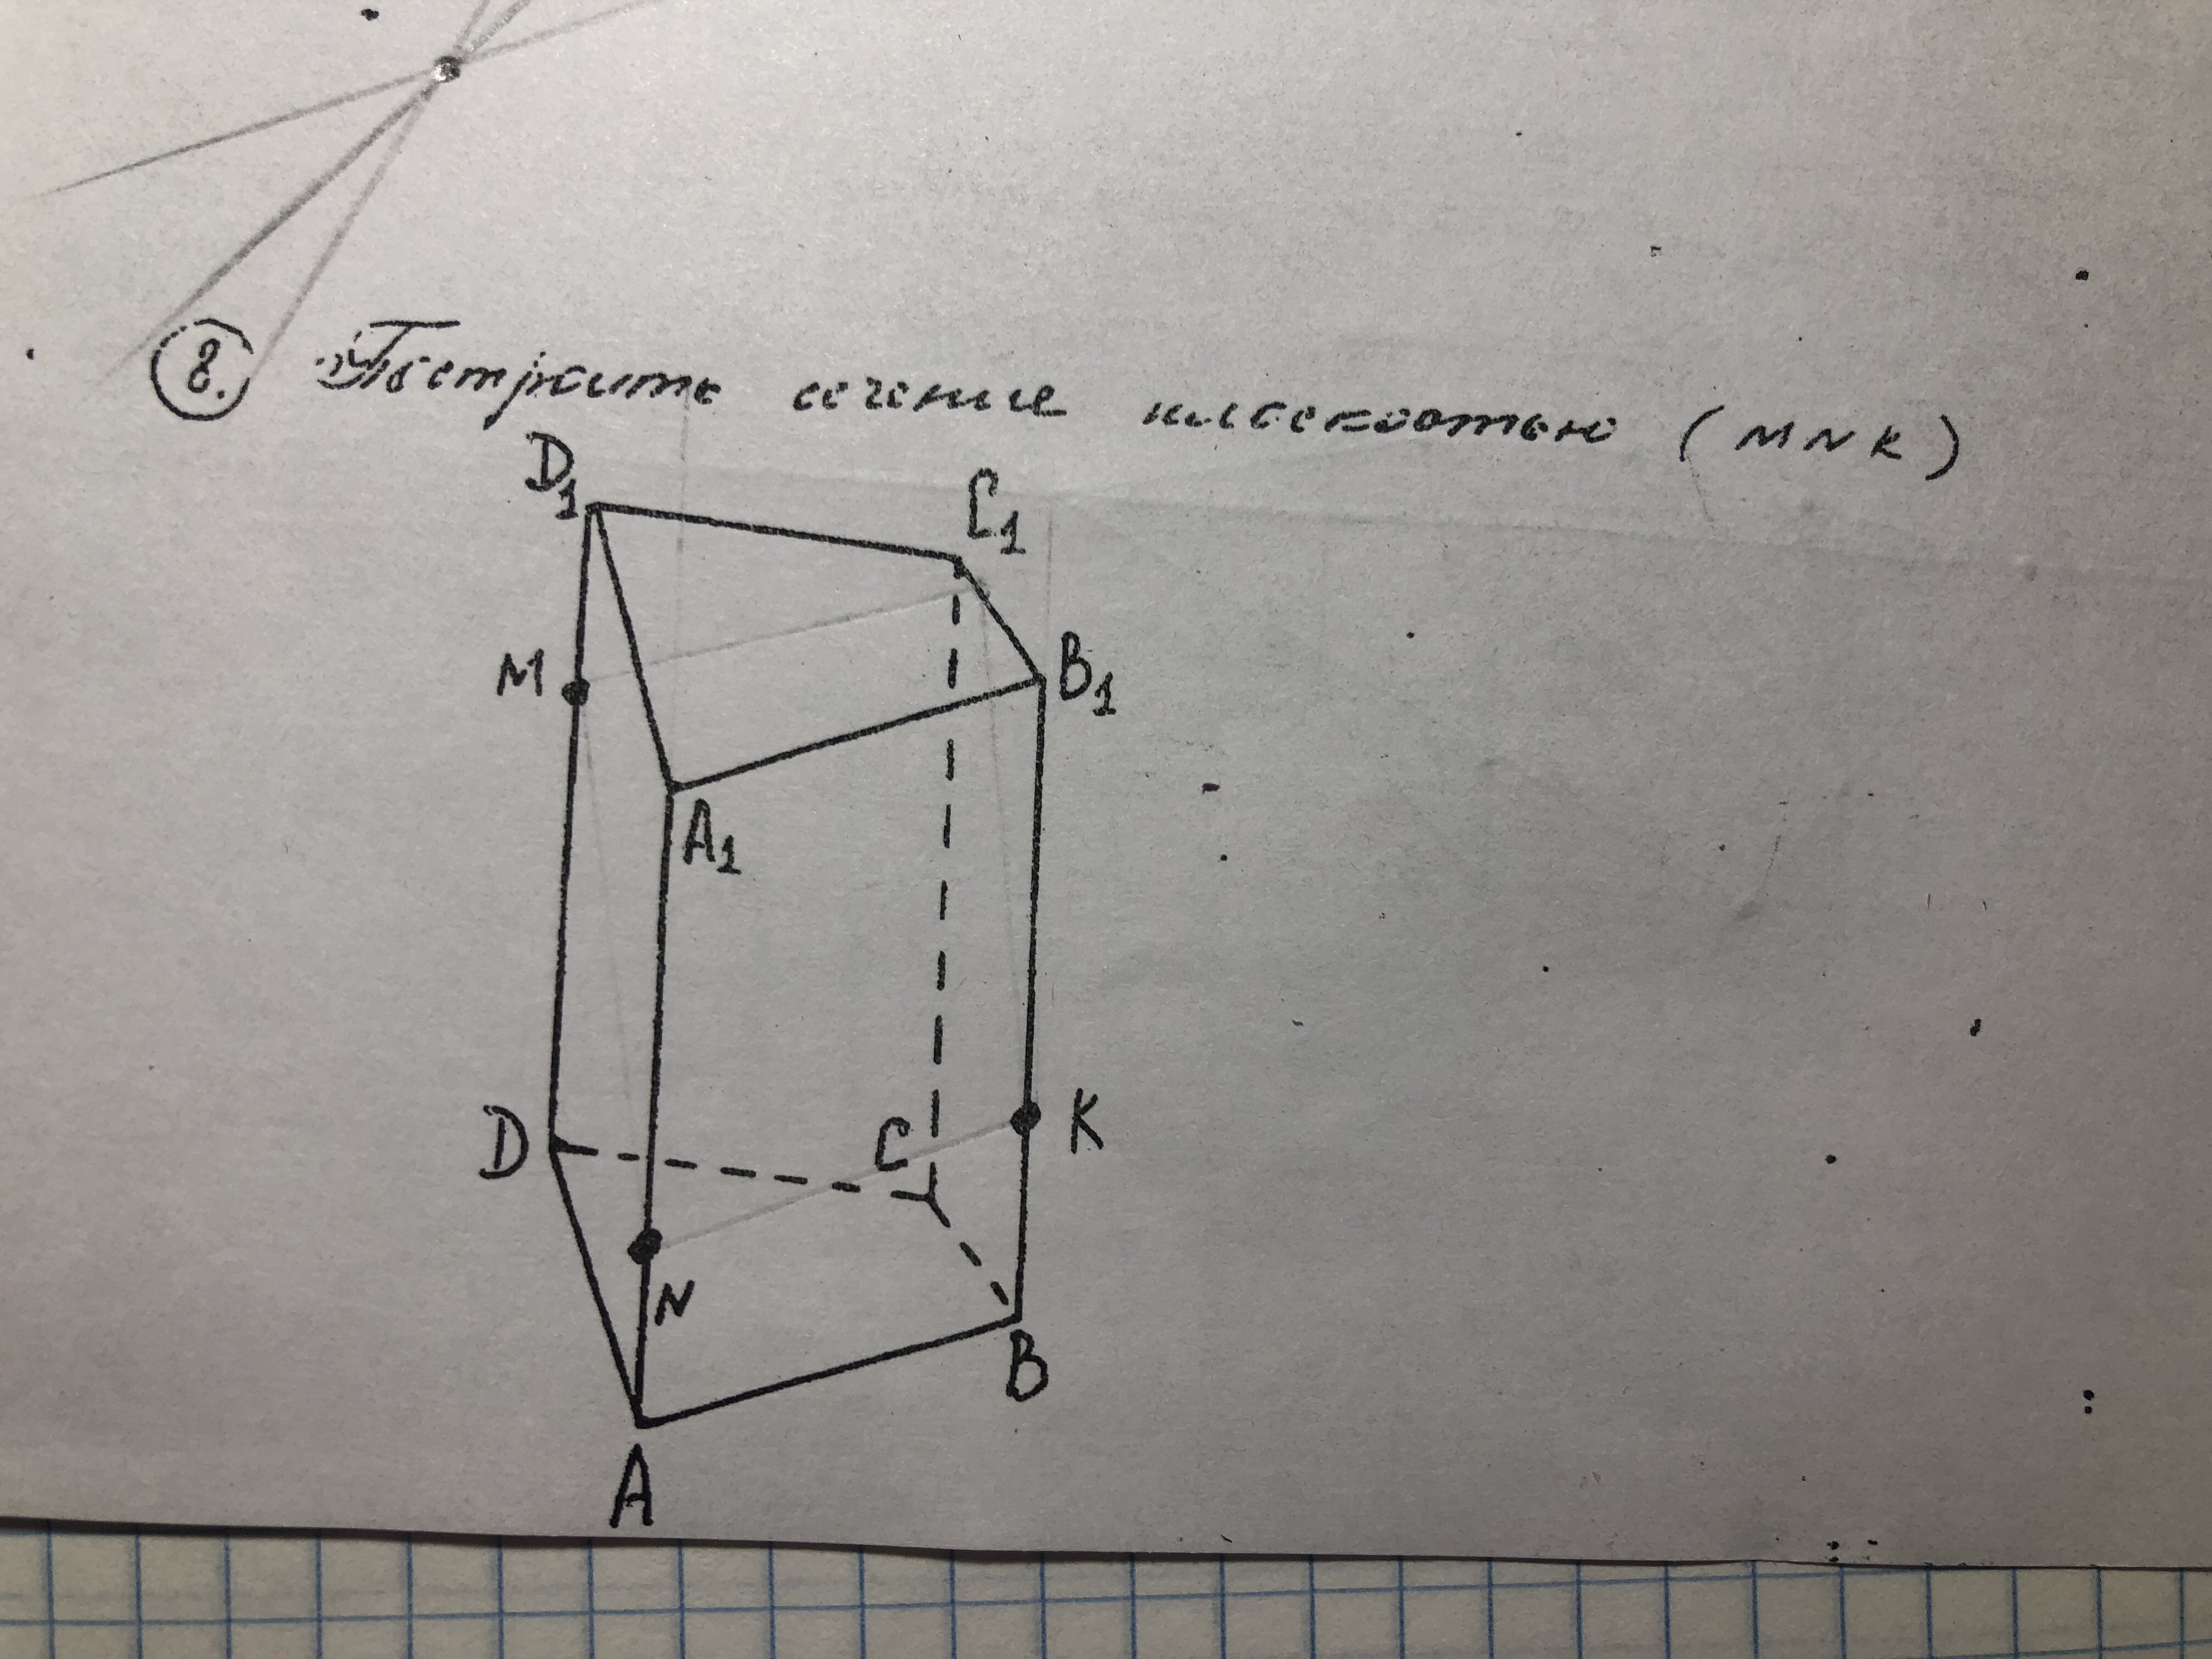 8. Построить сечение плоскостью (MNK)
D1
C1
M
B1
A1
D
C
K
N
B
A